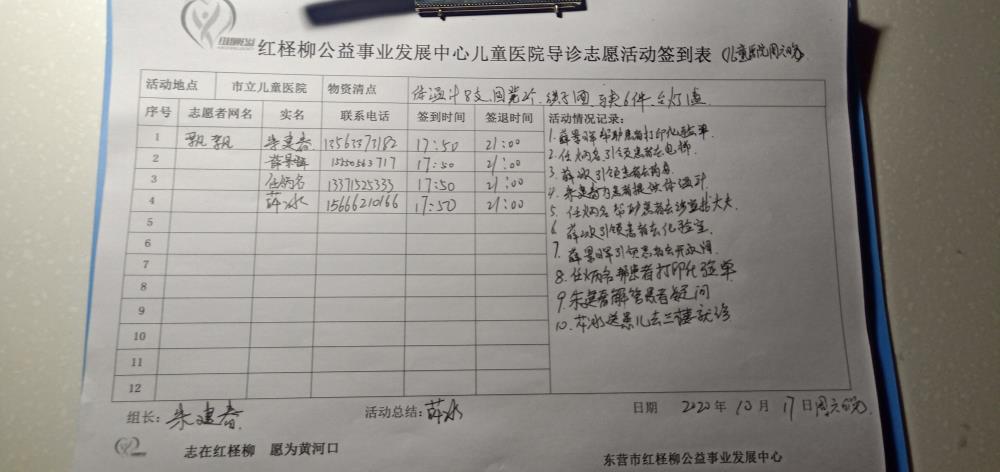 红柽柳公益事业发展中心儿童医院导诊志愿活动签到表(儿童医院周六晚)
活动地点 市立儿童医院 物资清点 体温计8支, 马夹6件, 台灯1盏
序号 志愿者网名 实名 联系电话 签到时间 签退时间 活动情况记录:
1 飘飘 朱建春 13563373182 17:50 21:00
2 薛景晖 15250563717 17:50 21:00
3 任炳名 13371525333 17:50 21:00
4 薛冰 15666210166 17:50 21:00
5
6
7
8
9
10
11
12
1. 薛景晖帮助患者打印化验单
2. 任炳名引领患者去电梯
3. 薛冰引领患者去
4. 朱建春为患者提供体温计
5. 任炳名帮助患者去诊室找大夫
6. 薛冰引领患者去化验室
7. 薛景晖引领患者去开水间
8. 任炳名帮患者打印化验单
9. 朱建春解答患者疑问
10. 薛冰送患儿去三楼就诊
组长: 朱建春 活动总结: 薛冰 日期 2020年10月17日周六晚
志在红柽柳 愿为黄河口
东营市红柽柳公益事业发展中心